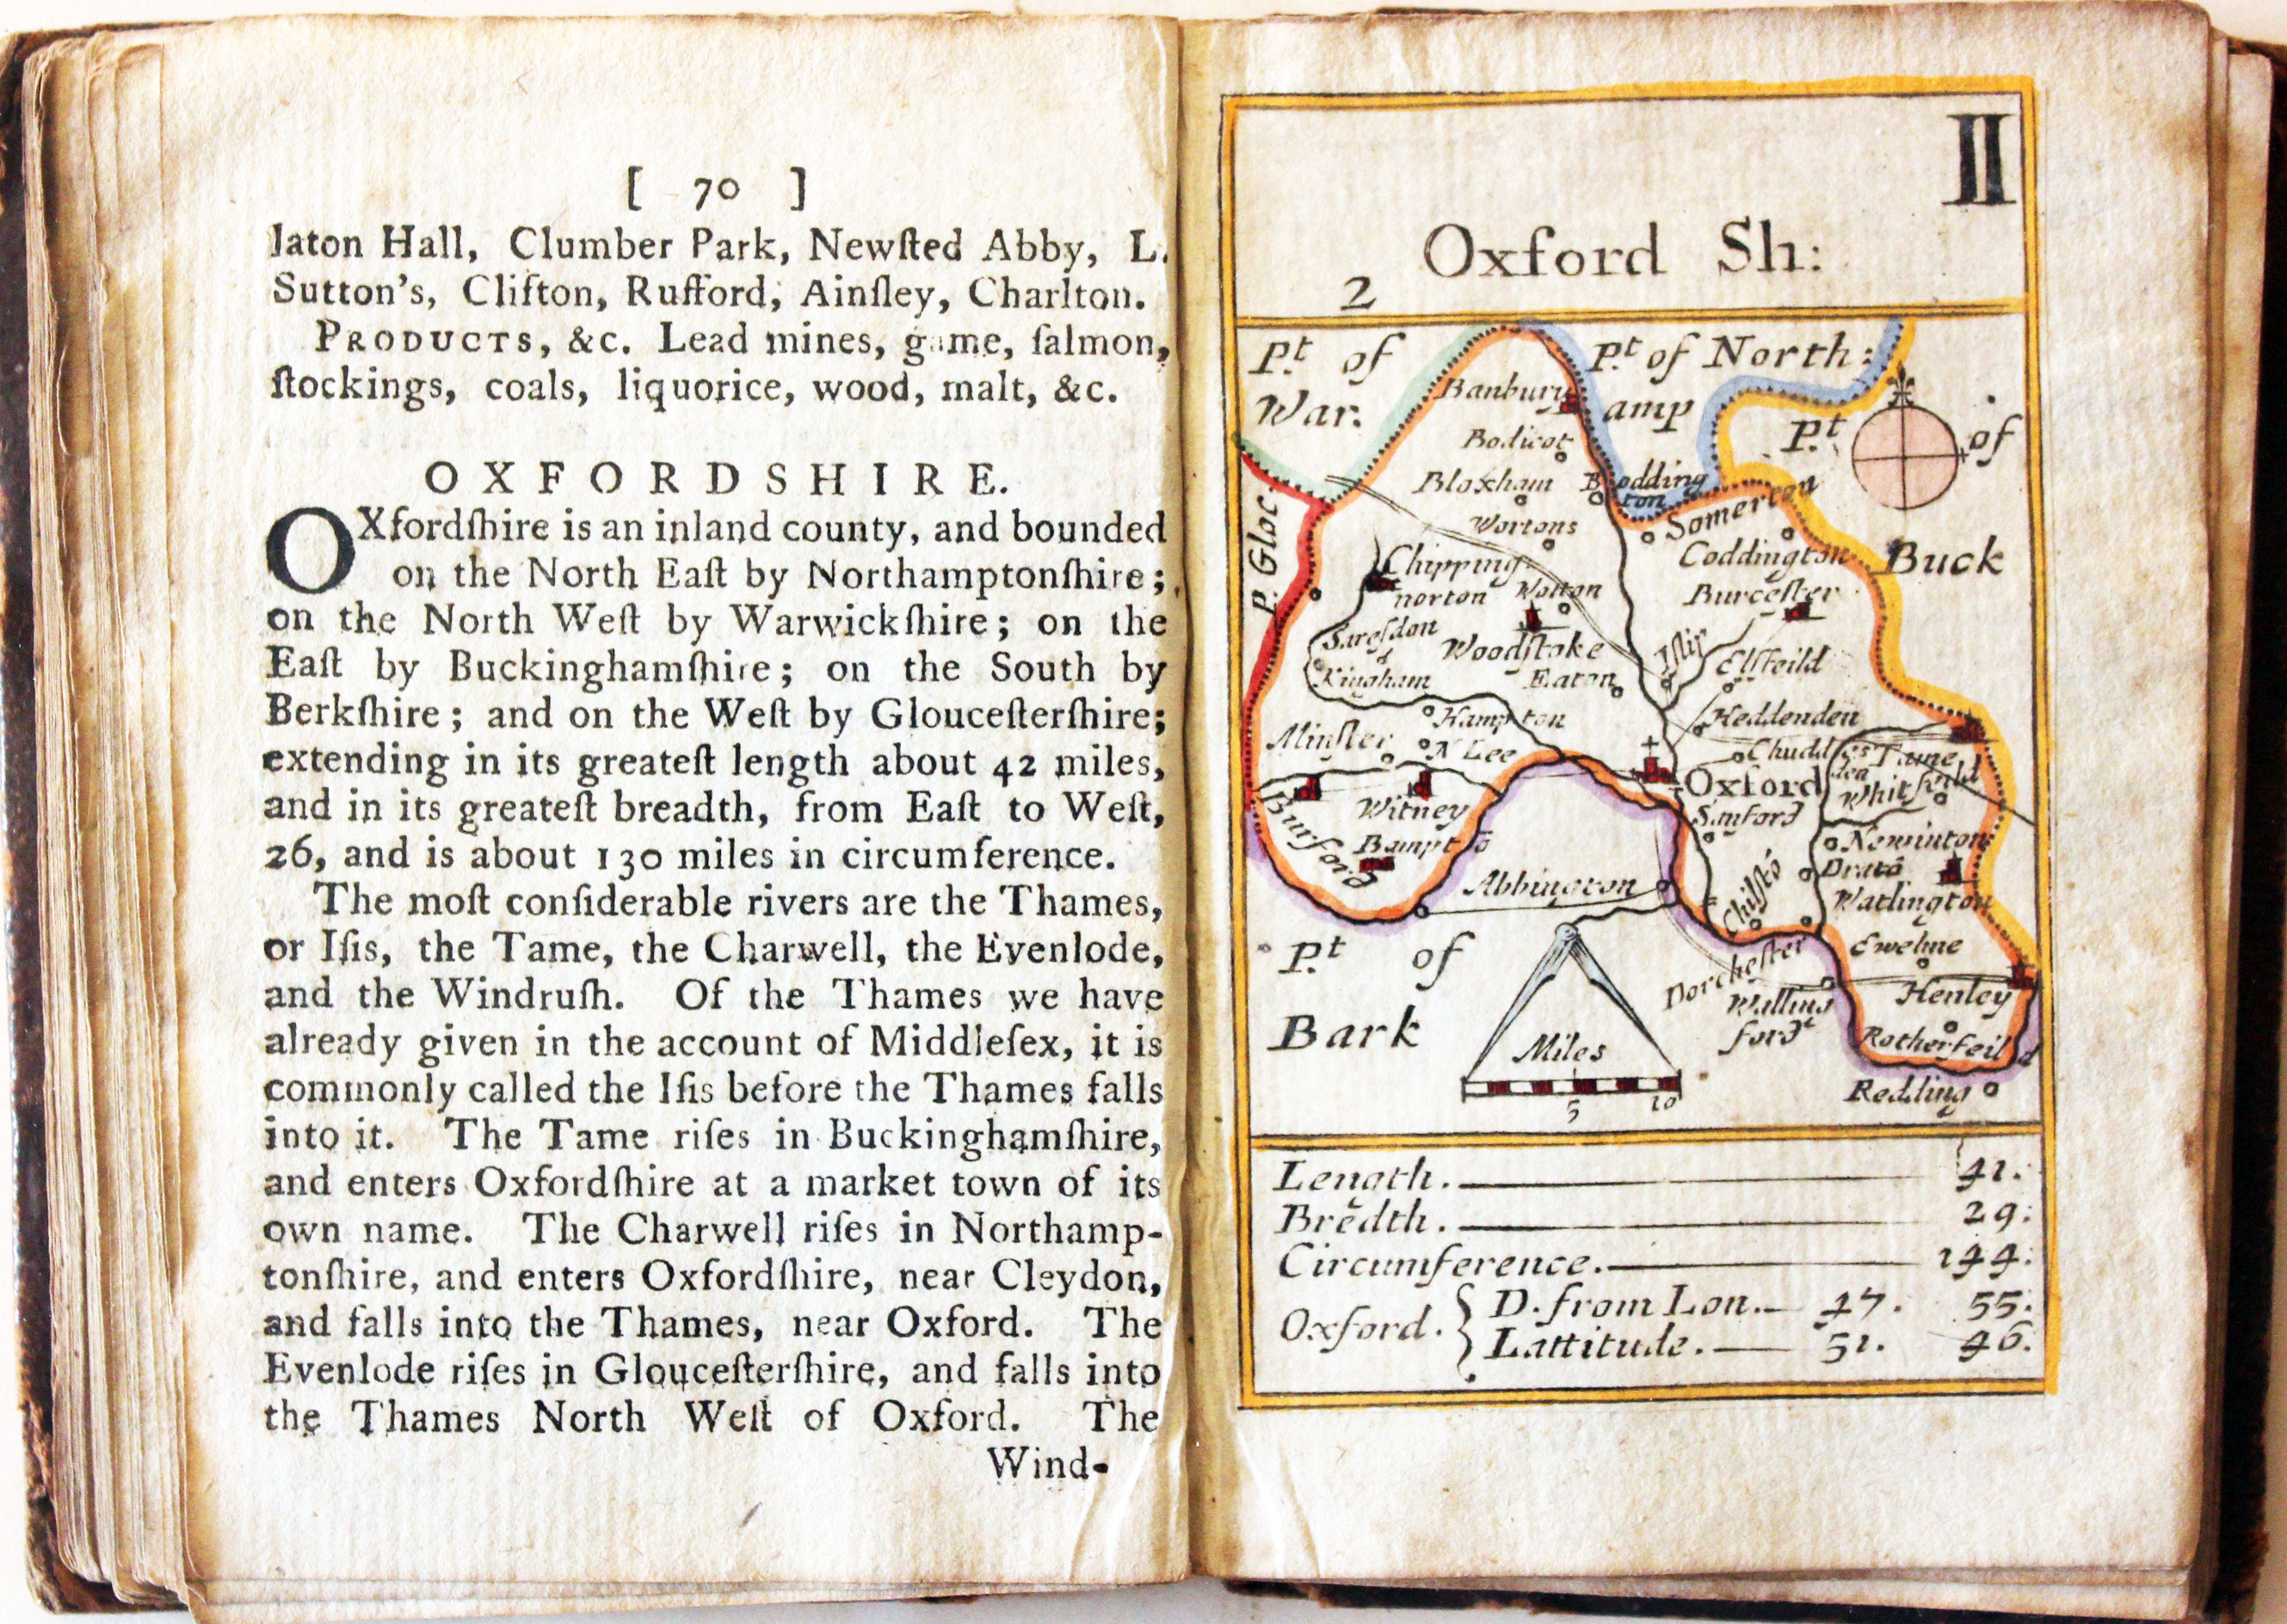 [ 70 ]
laton Hall, Clumber Park, Newſted Abby, L.
Sutton's, Clifton, Rufford, Ainſley, Charlton.
PRODUCTS, &c. Lead mines, game, ſalmon,
ſtockings, coals, liquorice, wood, malt, &c.
OXFORDSHIRE.
OXfordſhire is an inland county, and bounded
on the North Eaſt by Northamptonſhire;
on the North Weſt by Warwickſhire; on the
Eaſt by Buckinghamſhire; on the South by
Berkſhire; and on the Weſt by Glouceſterſhire;
extending in its greateſt length about 42 miles,
and in its greateſt breadth, from Eaſt to Weſt,
26, and is about 130 miles in circumference.
The moſt conſiderable rivers are the Thames,
or Iſis, the Tame, the Charwell, the Evenlode,
and the Windruſh. Of the Thames we have
already given in the account of Middleſex, it is
commonly called the Iſis before the Thames falls
into it. The Tame riſes in Buckinghamſhire,
and enters Oxfordſhire at a market town of its
own name. The Charwell riſes in Northamp-
tonſhire, and enters Oxfordſhire, near Cleydon,
and falls into the Thames, near Oxford. The
Evenlode riſes in Glouceſterſhire, and falls into
the Thames North Weſt of Oxford. The
Wind-
II
Oxford Sh:
2
Pt of
War.
Pt of North:
amp
Pt of
Buck
P. Gloc.
Banbury
Bodicot
Bloxham
Bodding
ton
Wortons
Somerton
Coddington
Chipping
norton
Wotton
Burceſter
Sareſdon
&
Kingham
Woodſtoke
Iſlip
Elſfeild
Eaton
Hampton
Heddenden
Minſter
N Lee
Chudd
Tame
Oxford
Whitfeild
Burford
Witney
Sanford
Bampto
Newinton
Abbington
Chiſto
Drato
Watlington
Pt of
Bark
Dorcheſter
Ewelme
Walling
ford
Henley
Rotherfeild
Redding
Miles
5 10
Length. 41.
Bredth. 29.
Circumference. 144.
Oxford. { D. from Lon. 47. 55.
Lattitude. 51. 46.